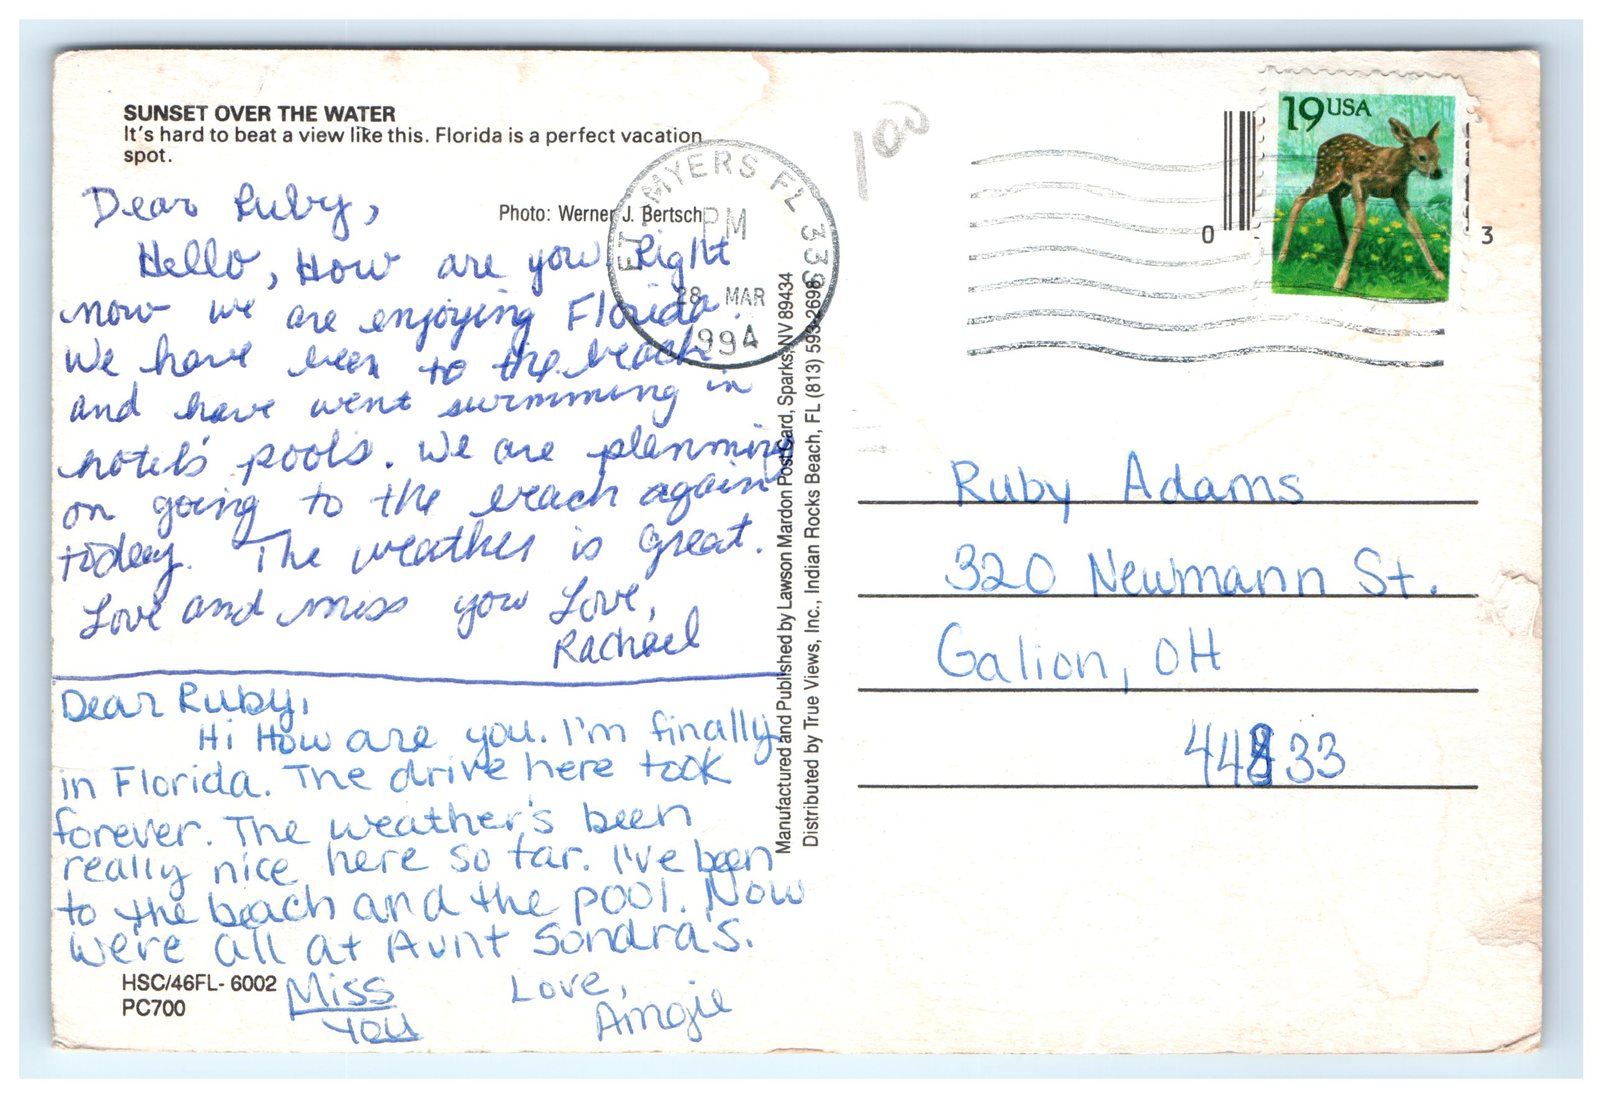 SUNSET OVER THE WATER
It's hard to beat a view like this. Florida is a perfect vacation
spot.
Photo: Werner J. Bertsch
Dear Ruby,
Hello, How are you. Right
now we are enjoying Florida.
We have been to the beach
and have went swimming in
hotel's pools. We are planning
on going to the beach again
today. The weather is great.
Love and miss you Love,
Rachael
Dear Ruby,
Hi How are you. I'm finally
in Florida. The drive here took
forever. The weather's been
really nice here so far. I've been
to the beach and the pool. Now
We're all at Aunt Sondra's.
Miss
You
Love,
Amgie
HSC/46FL- 6002
PC700
Manufactured and Published by Lawson Mardon Post Card, Sparks, NV 89434
Distributed by True Views, Inc., Indian Rocks Beach, FL (813) 593-2698
FT MYERS FL 339
PM
28 MAR
1994
100
19 USA
0
3
Ruby Adams
320 Newmann St.
Galion, OH
44833